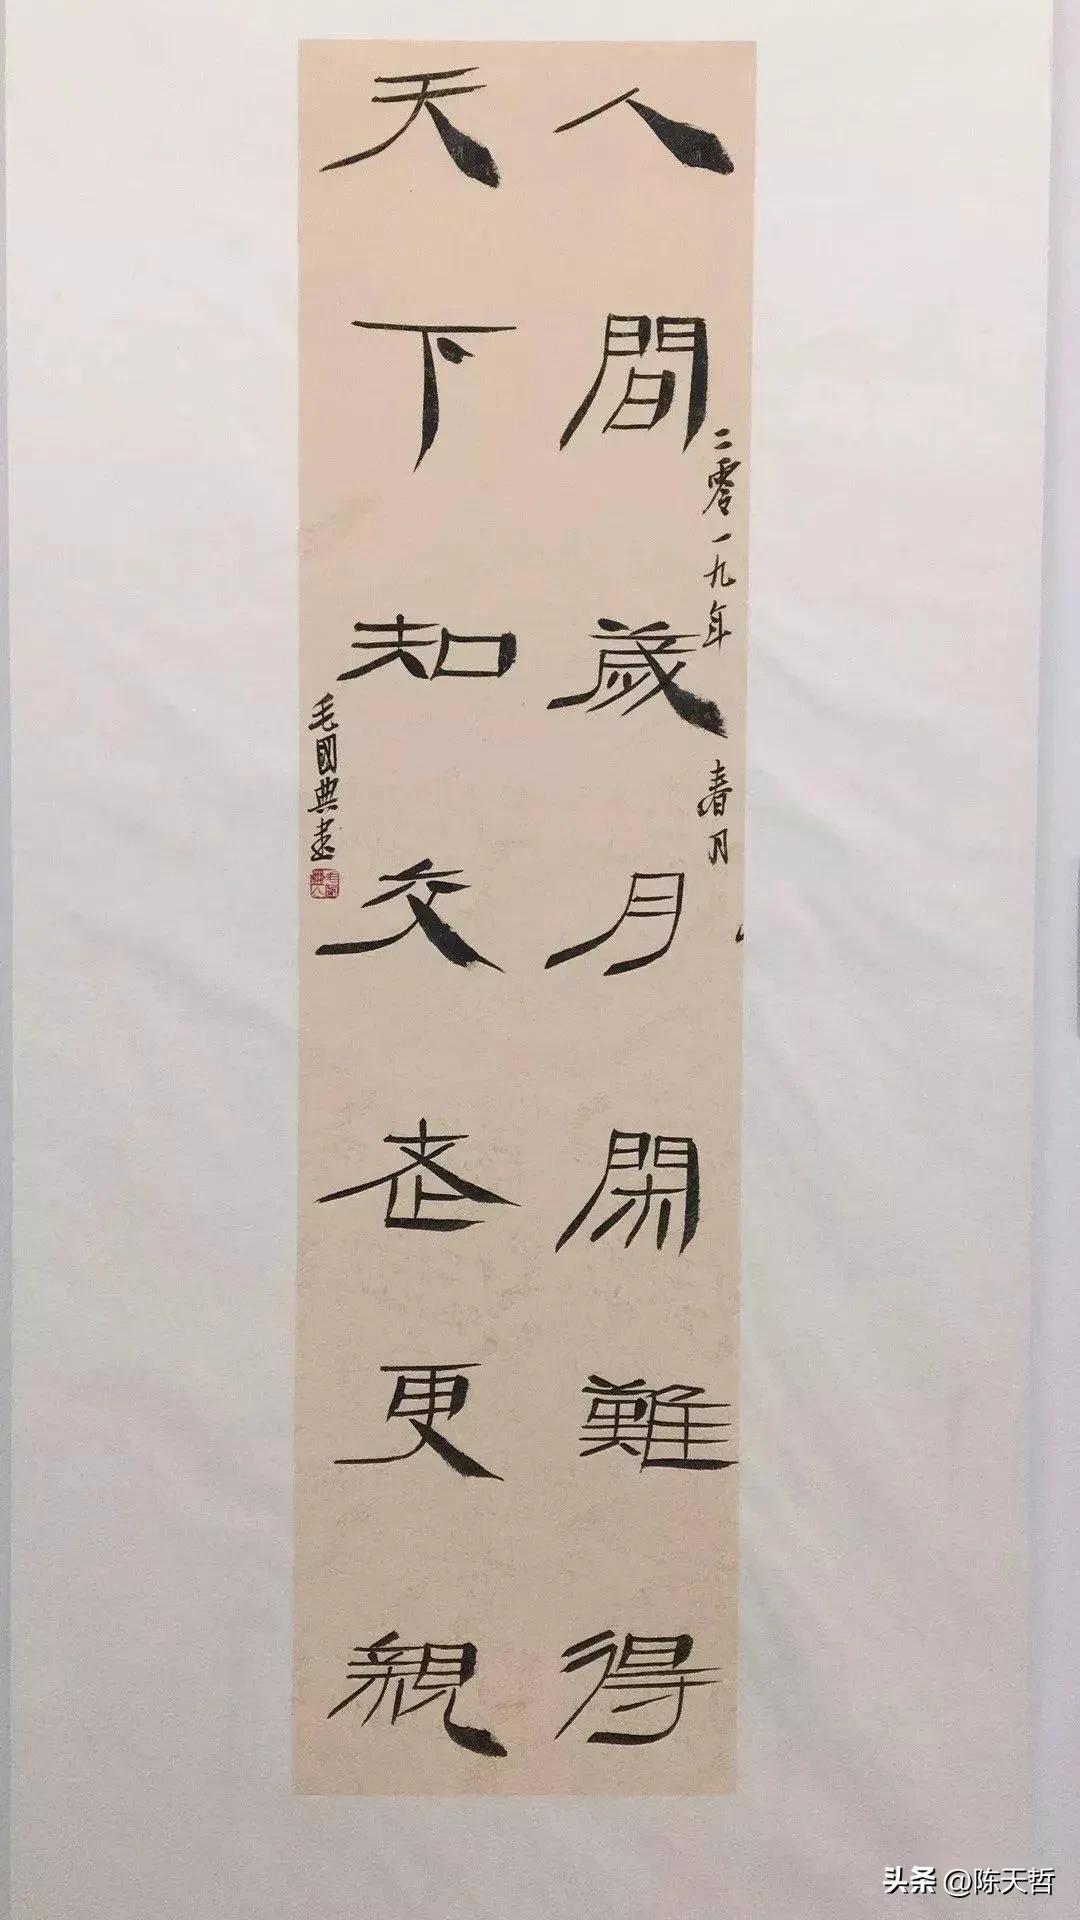 人間歲月閑難得
天下知交老更親
二零一九年 春月
毛國典書
头条 @陈天哲